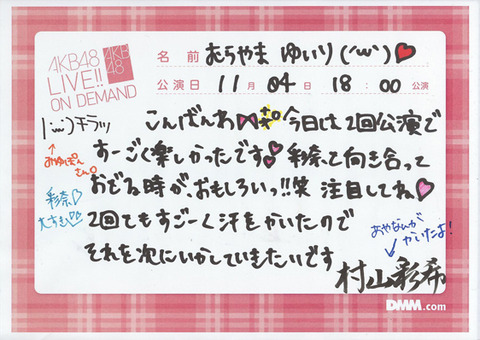 AKB48
LIVE!!
ON DEMAND
AKB
48
名 前 むらやま ゆいり(´ω`)♥
公演日 11月04日 18:00 公演
こんばんわ 今日は2回公演で
すーごく楽しかったです♥彩奈と向き合って
おどる時が、おもしろいっ!!笑 注目してね♥
2回ともすごーく汗をかいたので
それを次にいかしていきたいです
|ω・)チラッ
↑
みゆぽん
さん。
彩奈♡
大すき♡♡
あやなんが
かいたよ!
村山彩希
DMM.com